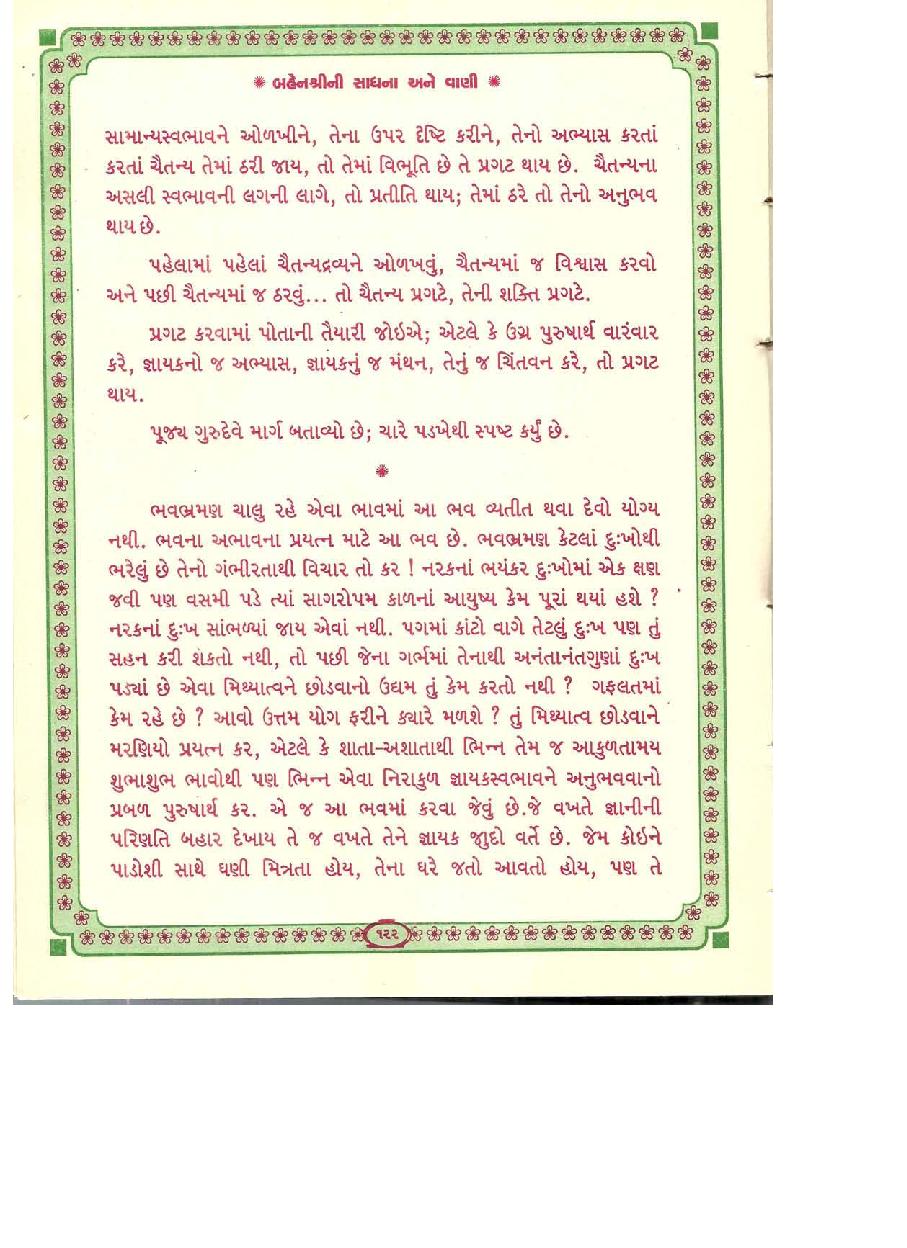 ✺ બહેનશ્રીની સાધના અને વાણી ✺
સામાન્યસ્વભાવને ઓળખીને, તેના ઉપર દૃષ્ટિ કરીને, તેનો અભ્યાસ કરતાં
કરતાં ચૈતન્ય તેમાં ઠરી જાય, તો તેમાં વિભૂતિ છે તે પ્રગટ થાય છે. ચૈતન્યના
અસલી સ્વભાવની લગની લાગે, તો પ્રતીતિ થાય; તેમાં ઠરે તો તેનો અનુભવ
થાય છે.
પહેલામાં પહેલાં ચૈતન્યદ્રવ્યને ઓળખવું, ચૈતન્યમાં જ વિશ્વાસ કરવો
અને પછી ચૈતન્યમાં જ ઠરવું... તો ચૈતન્ય પ્રગટે, તેની શક્તિ પ્રગટે.
પ્રગટ કરવામાં પોતાની તૈયારી જોઇએ; એટલે કે ઉગ્ર પુરુષાર્થ વારંવાર
કરે, જ્ઞાયકનો જ અભ્યાસ, જ્ઞાયકનું જ મંથન, તેનું જ ચિંતવન કરે, તો પ્રગટ
થાય.
પૂજ્ય ગુરુદેવે માર્ગ બતાવ્યો છે; ચારે પડખેથી સ્પષ્ટ કર્યું છે.
✺
ભવભ્રમણ ચાલુ રહે એવા ભાવમાં આ ભવ વ્યતીત થવા દેવો યોગ્ય
નથી. ભવના અભાવના પ્રયત્ન માટે આ ભવ છે. ભવભ્રમણ કેટલાં દુઃખોથી
ભરેલું છે તેનો ગંભીરતાથી વિચાર તો કર ! નરકનાં ભયંકર દુઃખોમાં એક ક્ષણ
જવી પણ વસમી પડે ત્યાં સાગરોપમ કાળનાં આયુષ્ય કેમ પૂરાં થયાં હશે ?
નરકનાં દુઃખ સાંભળ્યાં જાય એવાં નથી. પગમાં કાંટો વાગે તેટલું દુઃખ પણ તું
સહન કરી શકતો નથી, તો પછી જેના ગર્ભમાં તેનાથી અનંતાનંતગુણાં દુઃખ
પડ્યાં છે એવા મિથ્યાત્વને છોડવાનો ઉદ્યમ તું કેમ કરતો નથી ? ગફલતમાં
કેમ રહે છે ? આવો ઉત્તમ યોગ ફરીને ક્યારે મળશે ? તું મિથ્યાત્વ છોડવાને
મરણિયો પ્રયત્ન કર, એટલે કે શાતા-અશાતાથી ભિન્ન તેમ જ આકુળતામય
શુભાશુભ ભાવોથી પણ ભિન્ન એવા નિરાકુળ જ્ઞાયકસ્વભાવને અનુભવવાનો
પ્રબળ પુરુષાર્થ કર. એ જ આ ભવમાં કરવા જેવું છે.જે વખતે જ્ઞાનીની
પરિણતિ બહાર દેખાય તે જ વખતે તેને જ્ઞાયક જુદો વર્તે છે. જેમ કોઇને
પાડોશી સાથે ઘણી મિત્રતા હોય, તેના ઘરે જતો આવતો હોય, પણ તે
૧૨૨